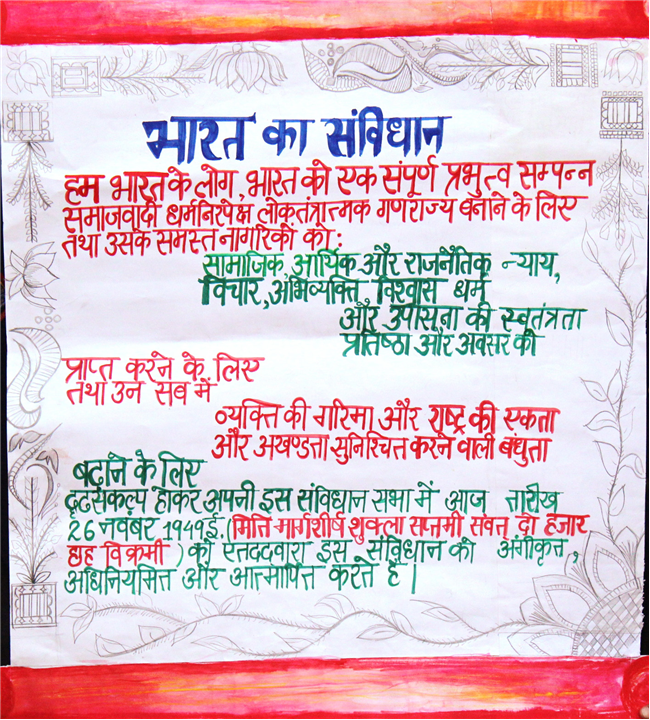 भारत का संविधान
हम भारत के लोग, भारत को एक संपूर्ण प्रभुत्व सम्पन्न
समाजवादी धर्मनिरपेक्ष लोकतंत्रात्मक गणराज्य बनाने के लिए
तथा उसके समस्त नागरिकों को:
सामाजिक, आर्थिक और राजनैतिक न्याय,
विचार, अभिव्यक्ति विश्वास धर्म
और उपासना की स्वतंत्रता
प्रतिष्ठा और अवसर की
प्राप्त करने के लिए
तथा उन सब में
व्यक्ति की गरिमा और राष्ट्र की एकता
और अखण्डत्ता सुनिश्चित करने वाली बंधुता
बढ़ाने के लिए
दृढसंकल्प होकर अपनी इस संविधान सभा में आज तारीख
26 नवंबर 1949ई. (मिति मार्गशीर्ष शुक्ला सप्तमी संवत् दो हजार
छह विक्रमी) को एतदद्वारा इस संविधान को अंगीकृत,
अधिनियमित और आत्मार्पित करते है।